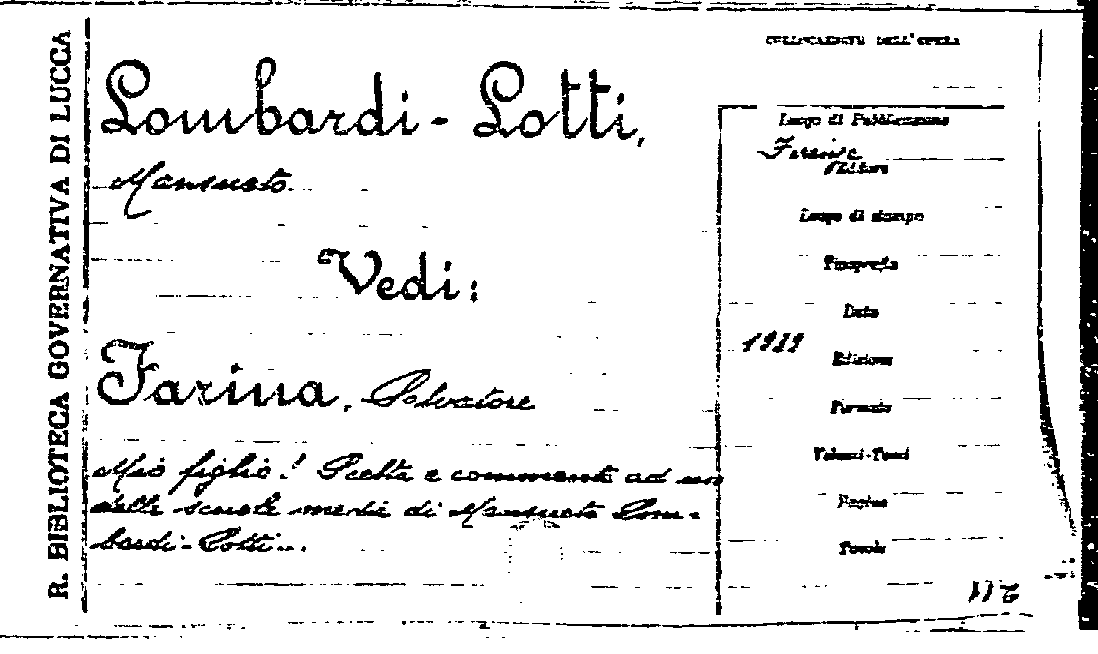 R. BIBLIOTECA GOVERNATIVA DI LUCCA
Lombardi-Lotti,
Mansueto.
Vedi:
Farina, Salvatore
Mio figlio! Scelta e commenti ad uso
delle scuole medie di Mansueto Lom-
bardi-Lotti...
COLLOCAZIONE DELL'OPERA
Luogo di Pubblicazione
Firenze
Editore
Luogo di stampa
Tipografia
Data
Edizione
Formato
Volumi-Tomi
Pagine
Tavole